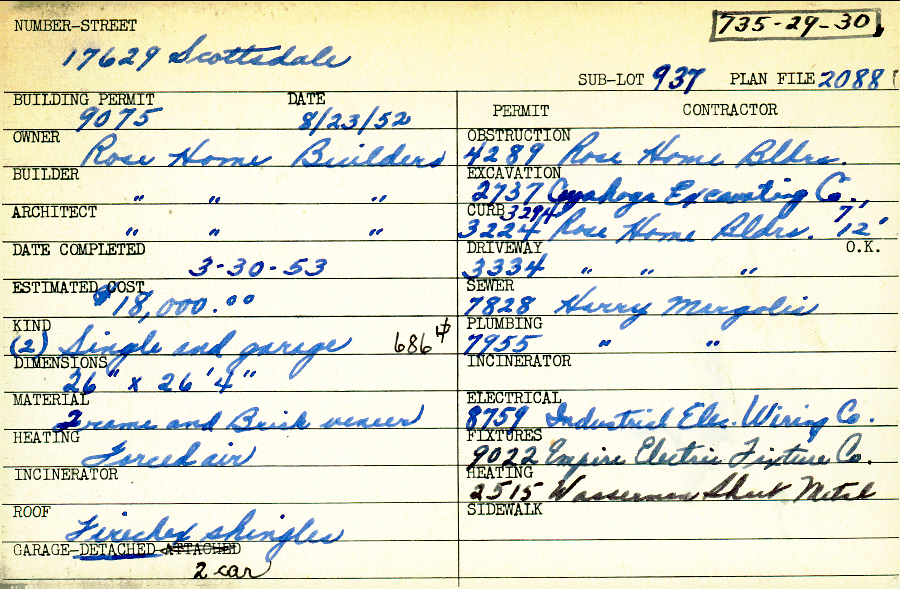 NUMBER-STREET
735-29-30
17629 Scottsdale
SUB-LOT 937 PLAN FILE 2088
BUILDING PERMIT DATE
9075 8/23/52
OWNER
Rose Home Builders
BUILDER
" " "
ARCHITECT
" " "
DATE COMPLETED
3-30-53
ESTIMATED COST
$18,000.00
KIND
(2) Single and garage 686
DIMENSIONS
26" x 26'4"
MATERIAL
Frame and Brick veneer
HEATING
Forced air
INCINERATOR
ROOF
Firechex shingles
GARAGE-DETACHED-ATTACHED
2 car
PERMIT CONTRACTOR
OBSTRUCTION
4289 Rose Home Bldrs.
EXCAVATION
2737 Cuyahoga Excavating Co.
CURB 3294 7'
3224 Rose Home Bldrs. 12'
DRIVEWAY O.K.
3334 " " "
SEWER
7828 Harry Margolis
PLUMBING
7955 " "
INCINERATOR
ELECTRICAL
8759 Industrial Elec. Wiring Co.
FIXTURES
9022 Empire Electric Fixture Co.
HEATING
2515 Wasserman Sheet Metal
SIDEWALK